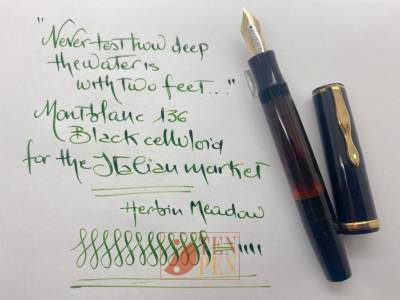 "Never test how deep
the water is
with two feet..."
Montblanc 136
Black celluloid
for the Italian market
Herbin Meadow
PEN